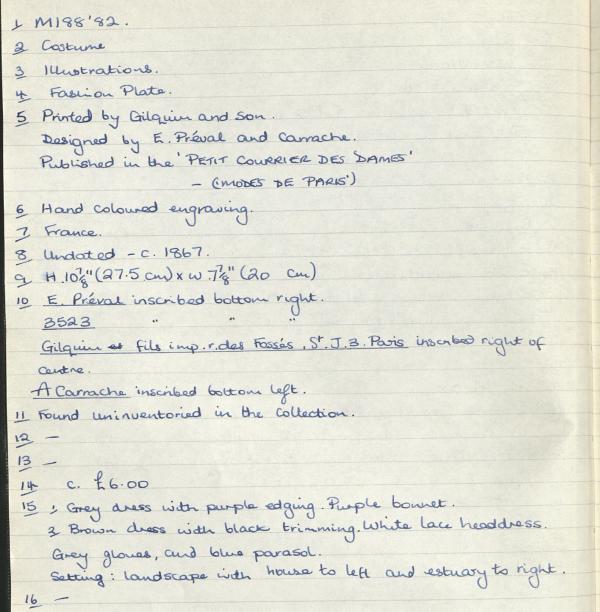 1 M188'82.
2 Costume
3 Illustrations.
4 Fashion Plate.
5 Printed by Gilquin and Son.
Designed by E. Préval and Carrache.
Published in the 'PETIT COURRIER DES DAMES'
- (MODES DE PARIS')
6 Hand coloured engraving.
7 France.
8 Undated - c. 1867.
9 H. 10⅞" (27.5 cm) x W. 7⅞" (20 cm)
10 E. Préval inscribed bottom right.
3523 " " "
Gilquin et fils imp. r. des Fossés, St. J. 3. Paris inscribed right of
centre.
A Carrache inscribed bottom left.
11 Found uninventoried in the collection.
12 -
13 -
14 c. £6.00
15 1, Grey dress with purple edging. Purple bonnet.
2 Brown dress with black trimming. White lace headdress.
Grey gloves, and blue parasol.
Setting: landscape with house to left and estuary to right.
16 -